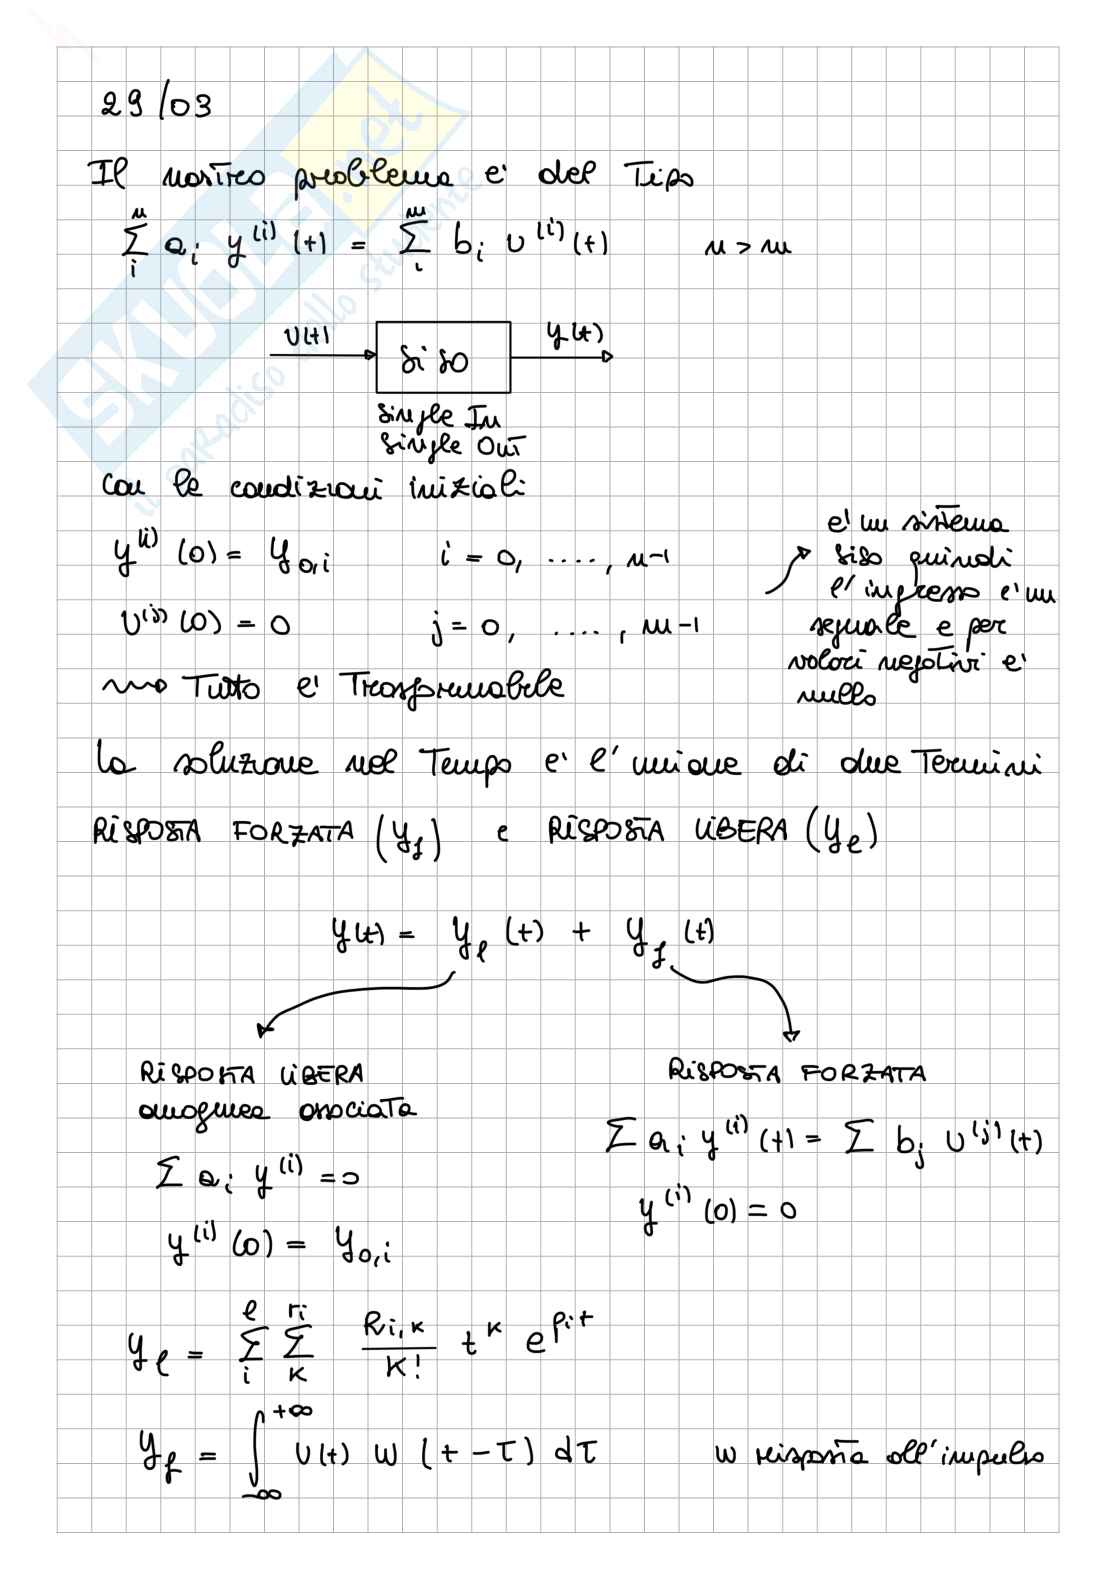 29/03
Il nostro problema e' del Tipo
n m
∑ a_i y^(i) (t) = ∑ b_i u^(i) (t) n > m
i i
U(t) y(t)
SiSO
Single In
Single Out
con le condizioni iniziali
y^(i) (0) = y_0,i i = 0, ...., n-1
U^(j) (0) = 0 j = 0, ...., m-1
e' un sistema
siso quindi
l'ingresso e' un
segnale e per
valori negativi e'
nullo
Tutto e' Trasformabile
la soluzione nel Tempo e' l'unione di due Termini
RISPOSTA FORZATA (y_f) e RISPOSTA LIBERA (y_l)
y(t) = y_l (t) + y_f (t)
RISPOSTA LIBERA
omogenea associata
∑ a_i y^(i) = 0
y^(i) (0) = y_0,i
RISPOSTA FORZATA
∑ a_i y^(i) (t) = ∑ b_j U^(j) (t)
y^(i) (0) = 0
l r_i
y_l = ∑ ∑ R_i,k / K! t^k e^(p_i t)
i k
+∞
y_f = ∫ U(t) w (t - τ) dτ w risposta all'impulso
-∞
SKUOLA.net
il paradiso dello studente